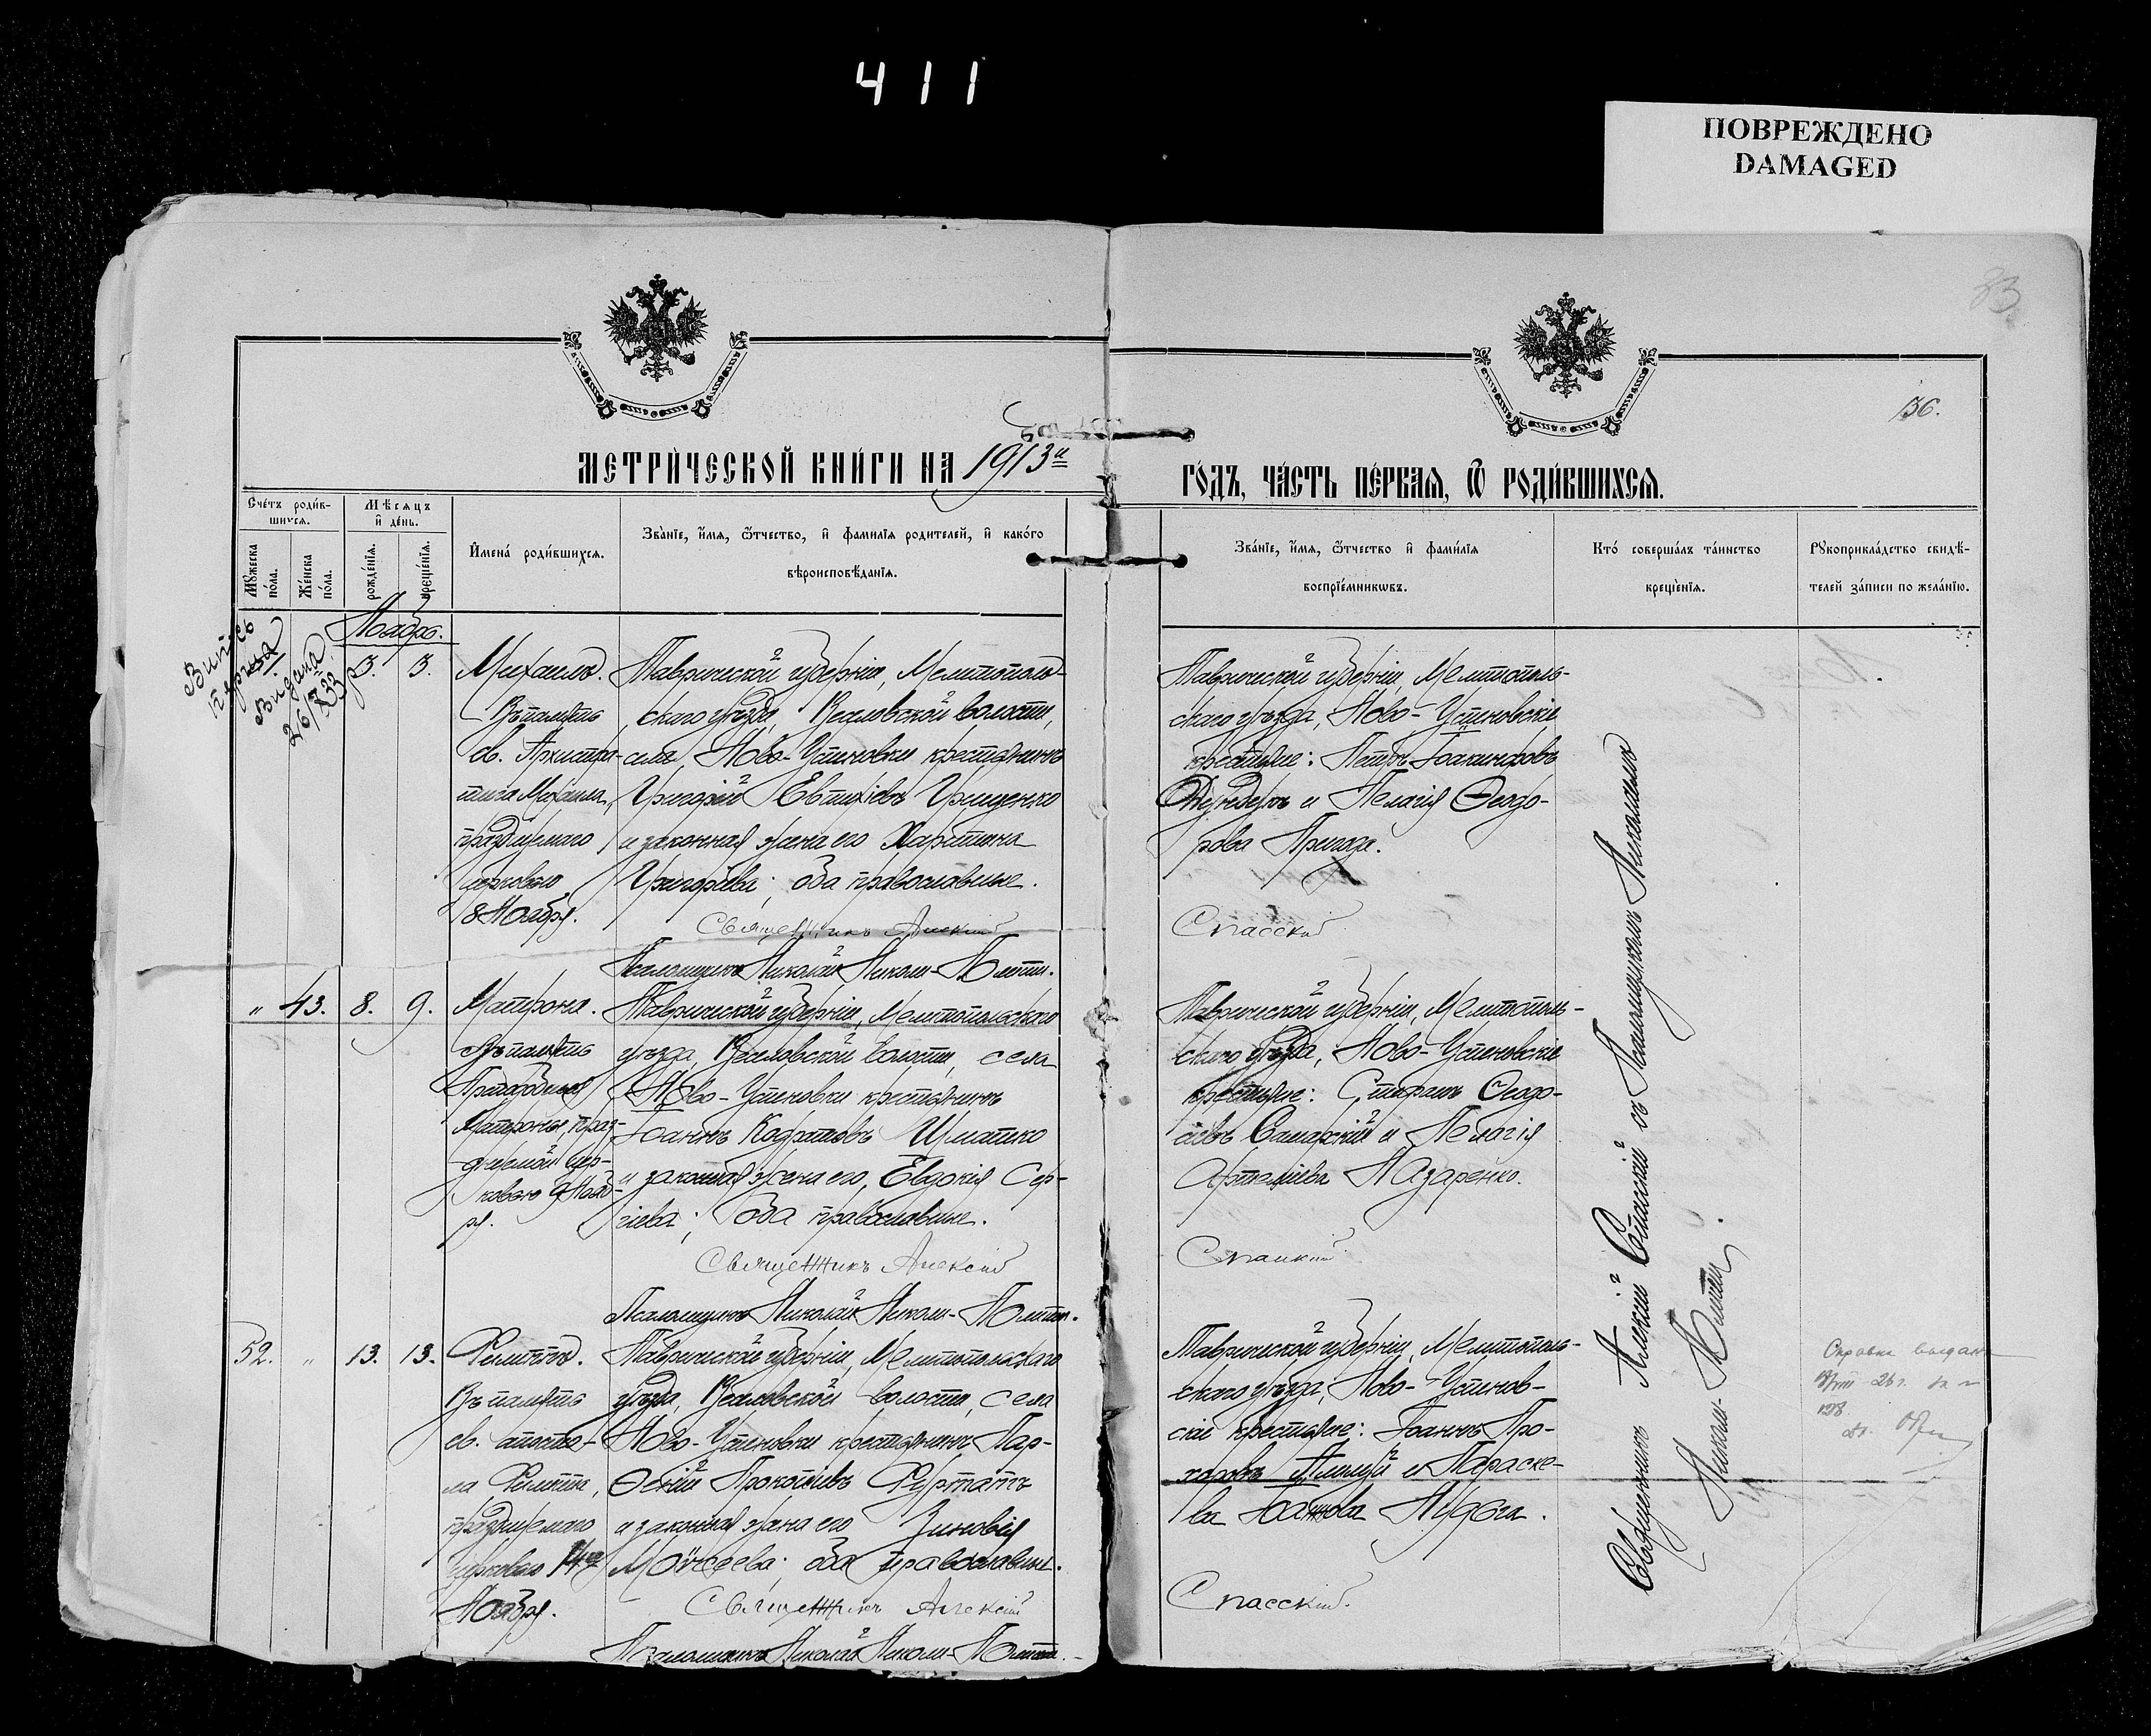 411
ПОВРЕЖДЕНО
DAMAGED
83
136.
МЕТРИ́ЧЕСКОЙ КНИ́ГИ НА 1913й
ГО́ДЪ, ЧА́СТЬ ПЕ́РВАЯ, Ѿ РОДИ́ВШИХСЯ.
Сче́тъ роди́в-
шихся.
Мѣсяцъ
и҆ де́нь.
Мꙋжеска
по́ла.
Же́нска
по́ла.
рожде́нїя.
креще́нїя.
И҆мена̀ роди́вшихся.
Зва́нїе, и҆́мя, ѻ҆́тчество, и҆ фами́лїя родителей, и҆ како́го
вѣроисповѣ́данїя.
Зва́нїе, и҆́мя, ѻ҆́тчество и҆ фами́лїя
воспрїе́мникѡвъ.
Кто́ соверша́лъ та́инство
креще́нїя.
Рꙋкоприкла́дство свидѣ́-
телей за́писи по жела́нїю.
Ноябрь.
Витяг
Видана
26/X 33 р
3. 3.
Михаилъ.
Въ память
св. Архистра-
тига Михаила,
празднуемаго
церковью
8 Ноября.
Таврической губерніи, Мелитополь-
скаго уѣзда, Веселовской волости,
села Ново-Успеновки крестьянинъ
Григорій Евтихіевъ Грищенко
и законная жена его Харитина
Григорьева; оба православные.
Священникъ Алексій
Псаломщикъ Николай Николи-
Таврической губерніи, Мелитополь-
скаго уѣзда, Ново-Успеновскіе
крестьяне: Петръ Іоакимовъ
и Пелагія Ѳеодо-
рова Пригода.
Спасскій
" 43. 8. 9.
Матрона.
Въ память
Преподобной
Матроны, праз-
днуемой цер-
ковью 9 Нояб-
ря.
Таврической губерніи, Мелитопольскаго
уѣзда, Веселовской волости, села
Ново-Успеновки крестьянинъ
Іоаннъ Кодратовъ Шматко
и законная жена его, Евдокія Сер-
гіева; оба православные.
Священникъ Алексій
Псаломщикъ Николай Николи-
Таврической губерніи, Мелитополь-
скаго уѣзда, Ново-Успеновскіе
крестьяне: Стефанъ Ѳеодо-
сіевъ Самарскій и Пелагія
Артеміева Назаренко.
Спасскій
52. " 13. 13.
Филиппъ.
Въ память
св. апосто-
ла Филиппа,
празднуемаго
церковью 14го
Ноября.
Таврической губерніи, Мелитопольскаго
уѣзда, Веселовской волости, села
Ново-Успеновки крестьянинъ Пар-
ѳеній Прокопіевъ Фуртатъ
и законная жена его Зиновія
Моисеева; оба православные.
Священникъ Алексій
Псаломщикъ Николай Николи-
Таврической губерніи, Мелитополь-
скаго уѣзда, Ново-Успенов-
скіе крестьяне: Іоаннъ Про-
хоровъ и Параске-
ва Іоаннова Нудьга.
Спасскій.
Священникъ Алексій Спасскій съ Псаломщикомъ Николаемъ
Николи-
Справка выдана